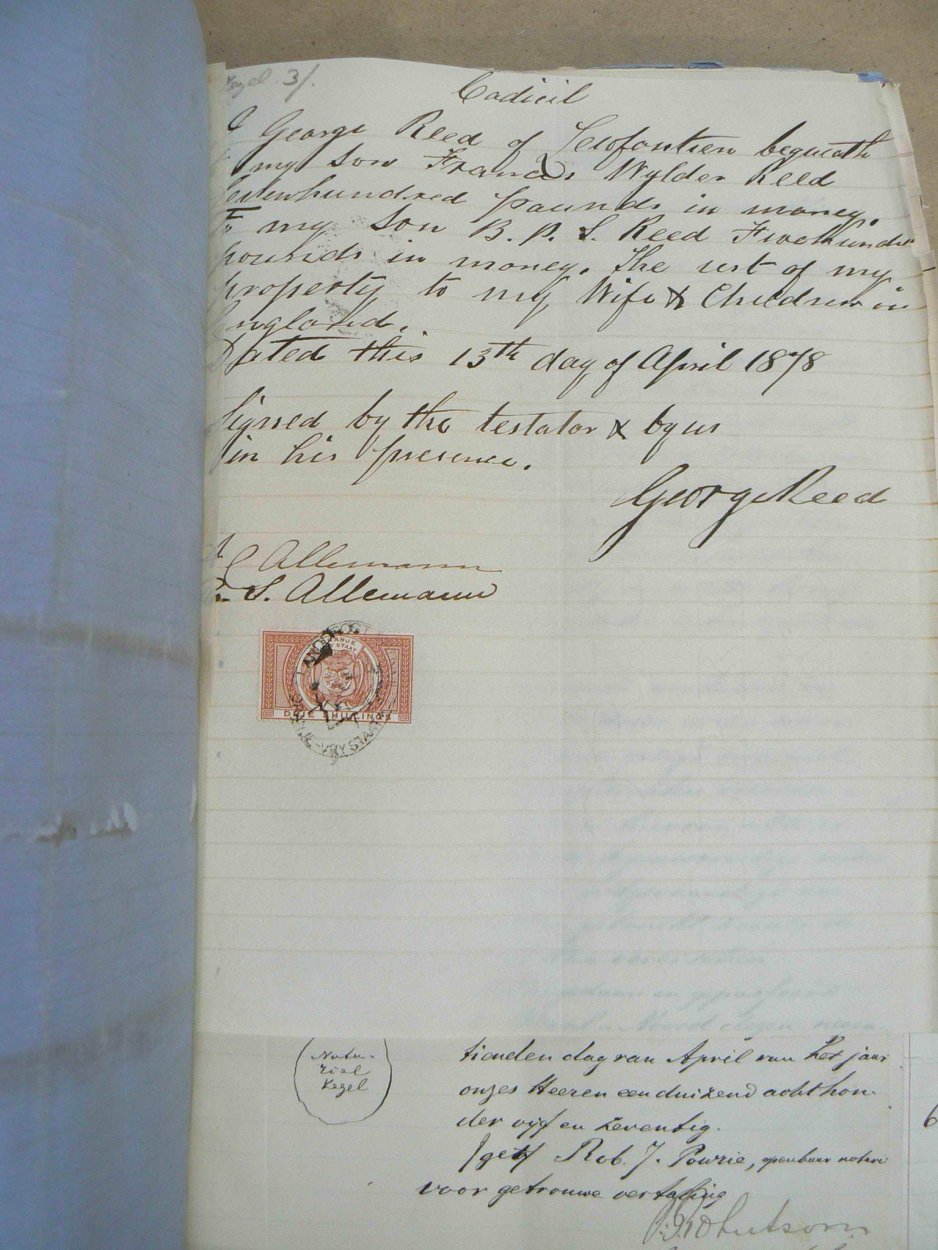 Zegel 3/.
Codicil
I George Reed of bequeath
my Son Francis Wylder Reed
hundred pounds in money.
To my Son B. P. S. Reed Fivehundred
pounds in money. The rest of my
property to my Wife & Children in
England.
Dated this 13th day of April 1878
Signed by the testator & by us
in his presence.
George Reed
Allemann
S. Allemann
ORANJE
DRIE SHILLINGS
Nota-
rieel
Zegel
tienden dag van April van het jaar
onzes Heeren eenduizend achthon-
der vijf en zeventig.
(get) Rob. J. Powrie, openbaar notaris
voor getrouwe vertaling
6